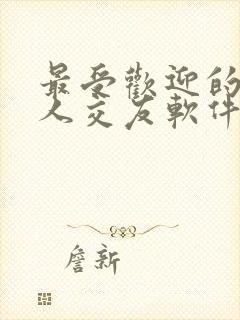 最受歡迎的
人交友軟件
詹新